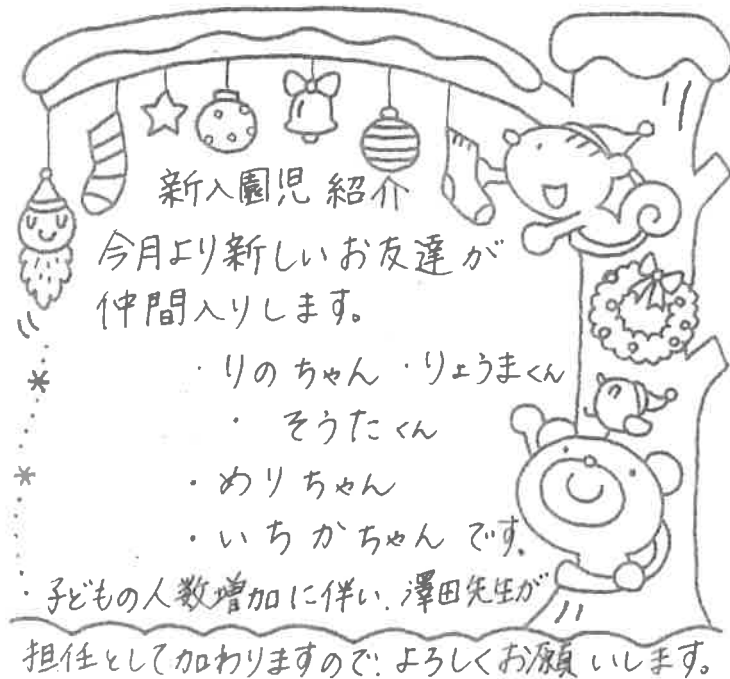 新入園児 紹介
今月より新しいお友達が
仲間入りします。
・りのちゃん ・りょうまくん
・そうたくん
・めりちゃん
・いちかちゃん です。
子どもの人数増加に伴い、澤田先生が
担任として加わりますので、よろしくお願いします。